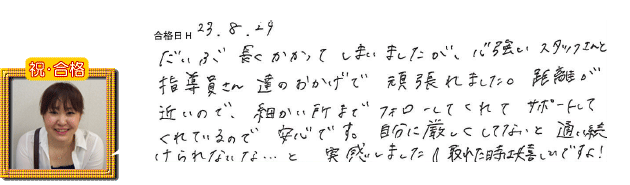 合格日 H 23.8.29
だいぶ長くかかってしまいましたが、心強いスタッフさんと
祝・合格
指導員さん達のおかげで頑張れました。距離が
近いので、細かい所までフォローしてくれてサポートして
くれているので安心です。自分に厳しくしてないと通い続
けられないな…と実感しました!取れた時は嬉しいですよ!